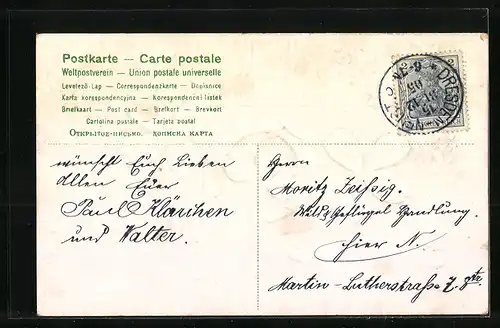 Postkarte — Carte postale
Weltpostverein — Union postale universelle
Levelező-Lap — Correspondenzkarte — Dopisnice
Karta korespondencyjna — Korespondenčni listek
Briefkaart — Post card — Brefkort — Brevkort
Cartolina postale — Tarjeta postal
Открытое письмо. ДОПИСНА КАРТА
DRESDEN
wünscht Euch Lieben
Allen Euer
Paul Klärchen
und Walter.
Herrn
Moritz Zeissig.
Wild & Geflügel Handlung.
hier N.
Martin-Lutherstraße 7.